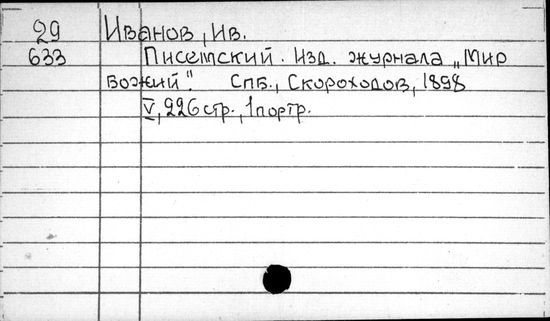 29 Иванов, Ив.
633 Писемский. Изд. журнала „Мир
Божий". СПБ., Скороходов, 1898
V, 226 стр., 1 портр.